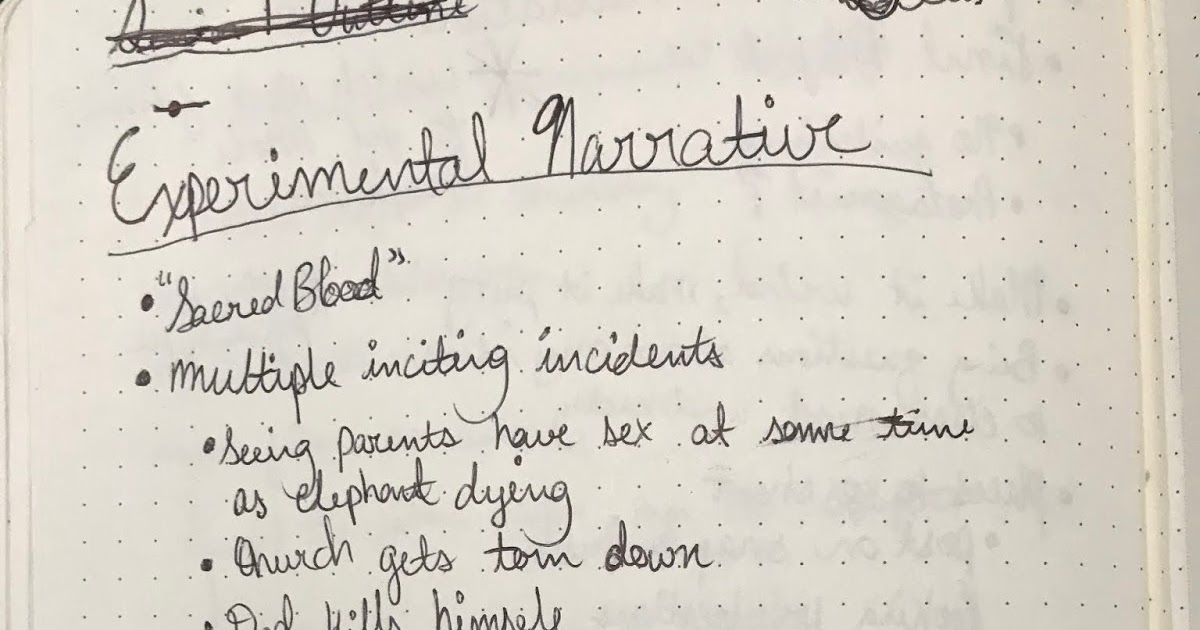 Experimental Narrative
• "Sacred Blood"
• Multiple inciting incidents
• Seeing parents have sex at same time
as elephant dying
• Church gets torn down
• Dad kills himself